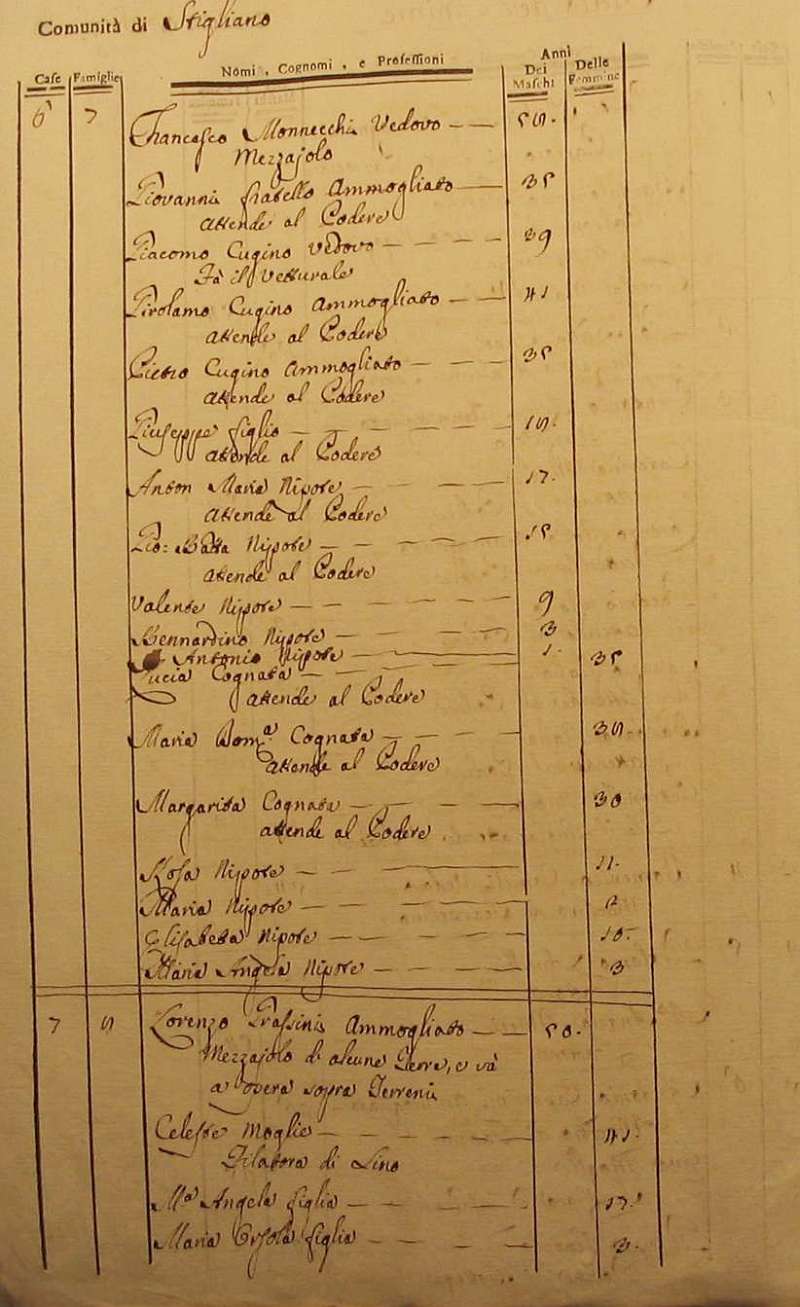 Comunità di Stigliano
Case Famiglie Nomi, Cognomi, e Professioni Anni Dei Maschi Delle Femmine
6 7 Francesco Monnecchi Vedovo
Mezzajolo
Giovanni fratello Ammogliato 35
attende al Podere
Giacomo Cugino Vedovo 39
Fà il Vetturale
Girolamo Cugino Ammogliato 41
attende al Podere
Pietro Cugino Ammogliato 35
attende al Podere
Giuseppe figlio
attende al Podere
Anton Maria Nipote 17
attende al Podere
Gio: Batta Nipote 15
attende al Podere
Valente Nipote 9
Bernardino Nipote 3
Antonio Nipote 1
Lucia Cognata 35
attende al Podere
Maria Dom.ca Cognata
attende al Podere
Margarita Cognata 30
attende al Podere
Rosa Nipote 11
Maria Nipote
Elisabetta Nipote 10
Maria Angela Nipote 3
7 Lorenzo Grassini Ammogliato 50
Mezzajolo di alcune Terre, e và
a opera sopra Terreni
Celeste Moglie 41
Filatora di Lino
M.a Angela figlia 17
Maria Orsola figlia 3